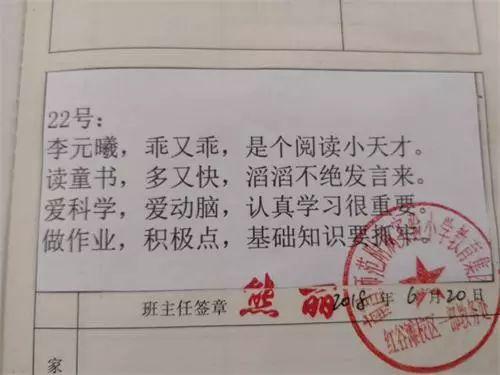 22号：
李元曦，乖又乖，是个阅读小天才。
读童书，多又快，滔滔不绝发言来。
爱科学，爱动脑，认真学习很重要。
做作业，积极点，基础知识要抓牢。
班主任签章 熊丽 2018年6月20日
红谷滩校区
家